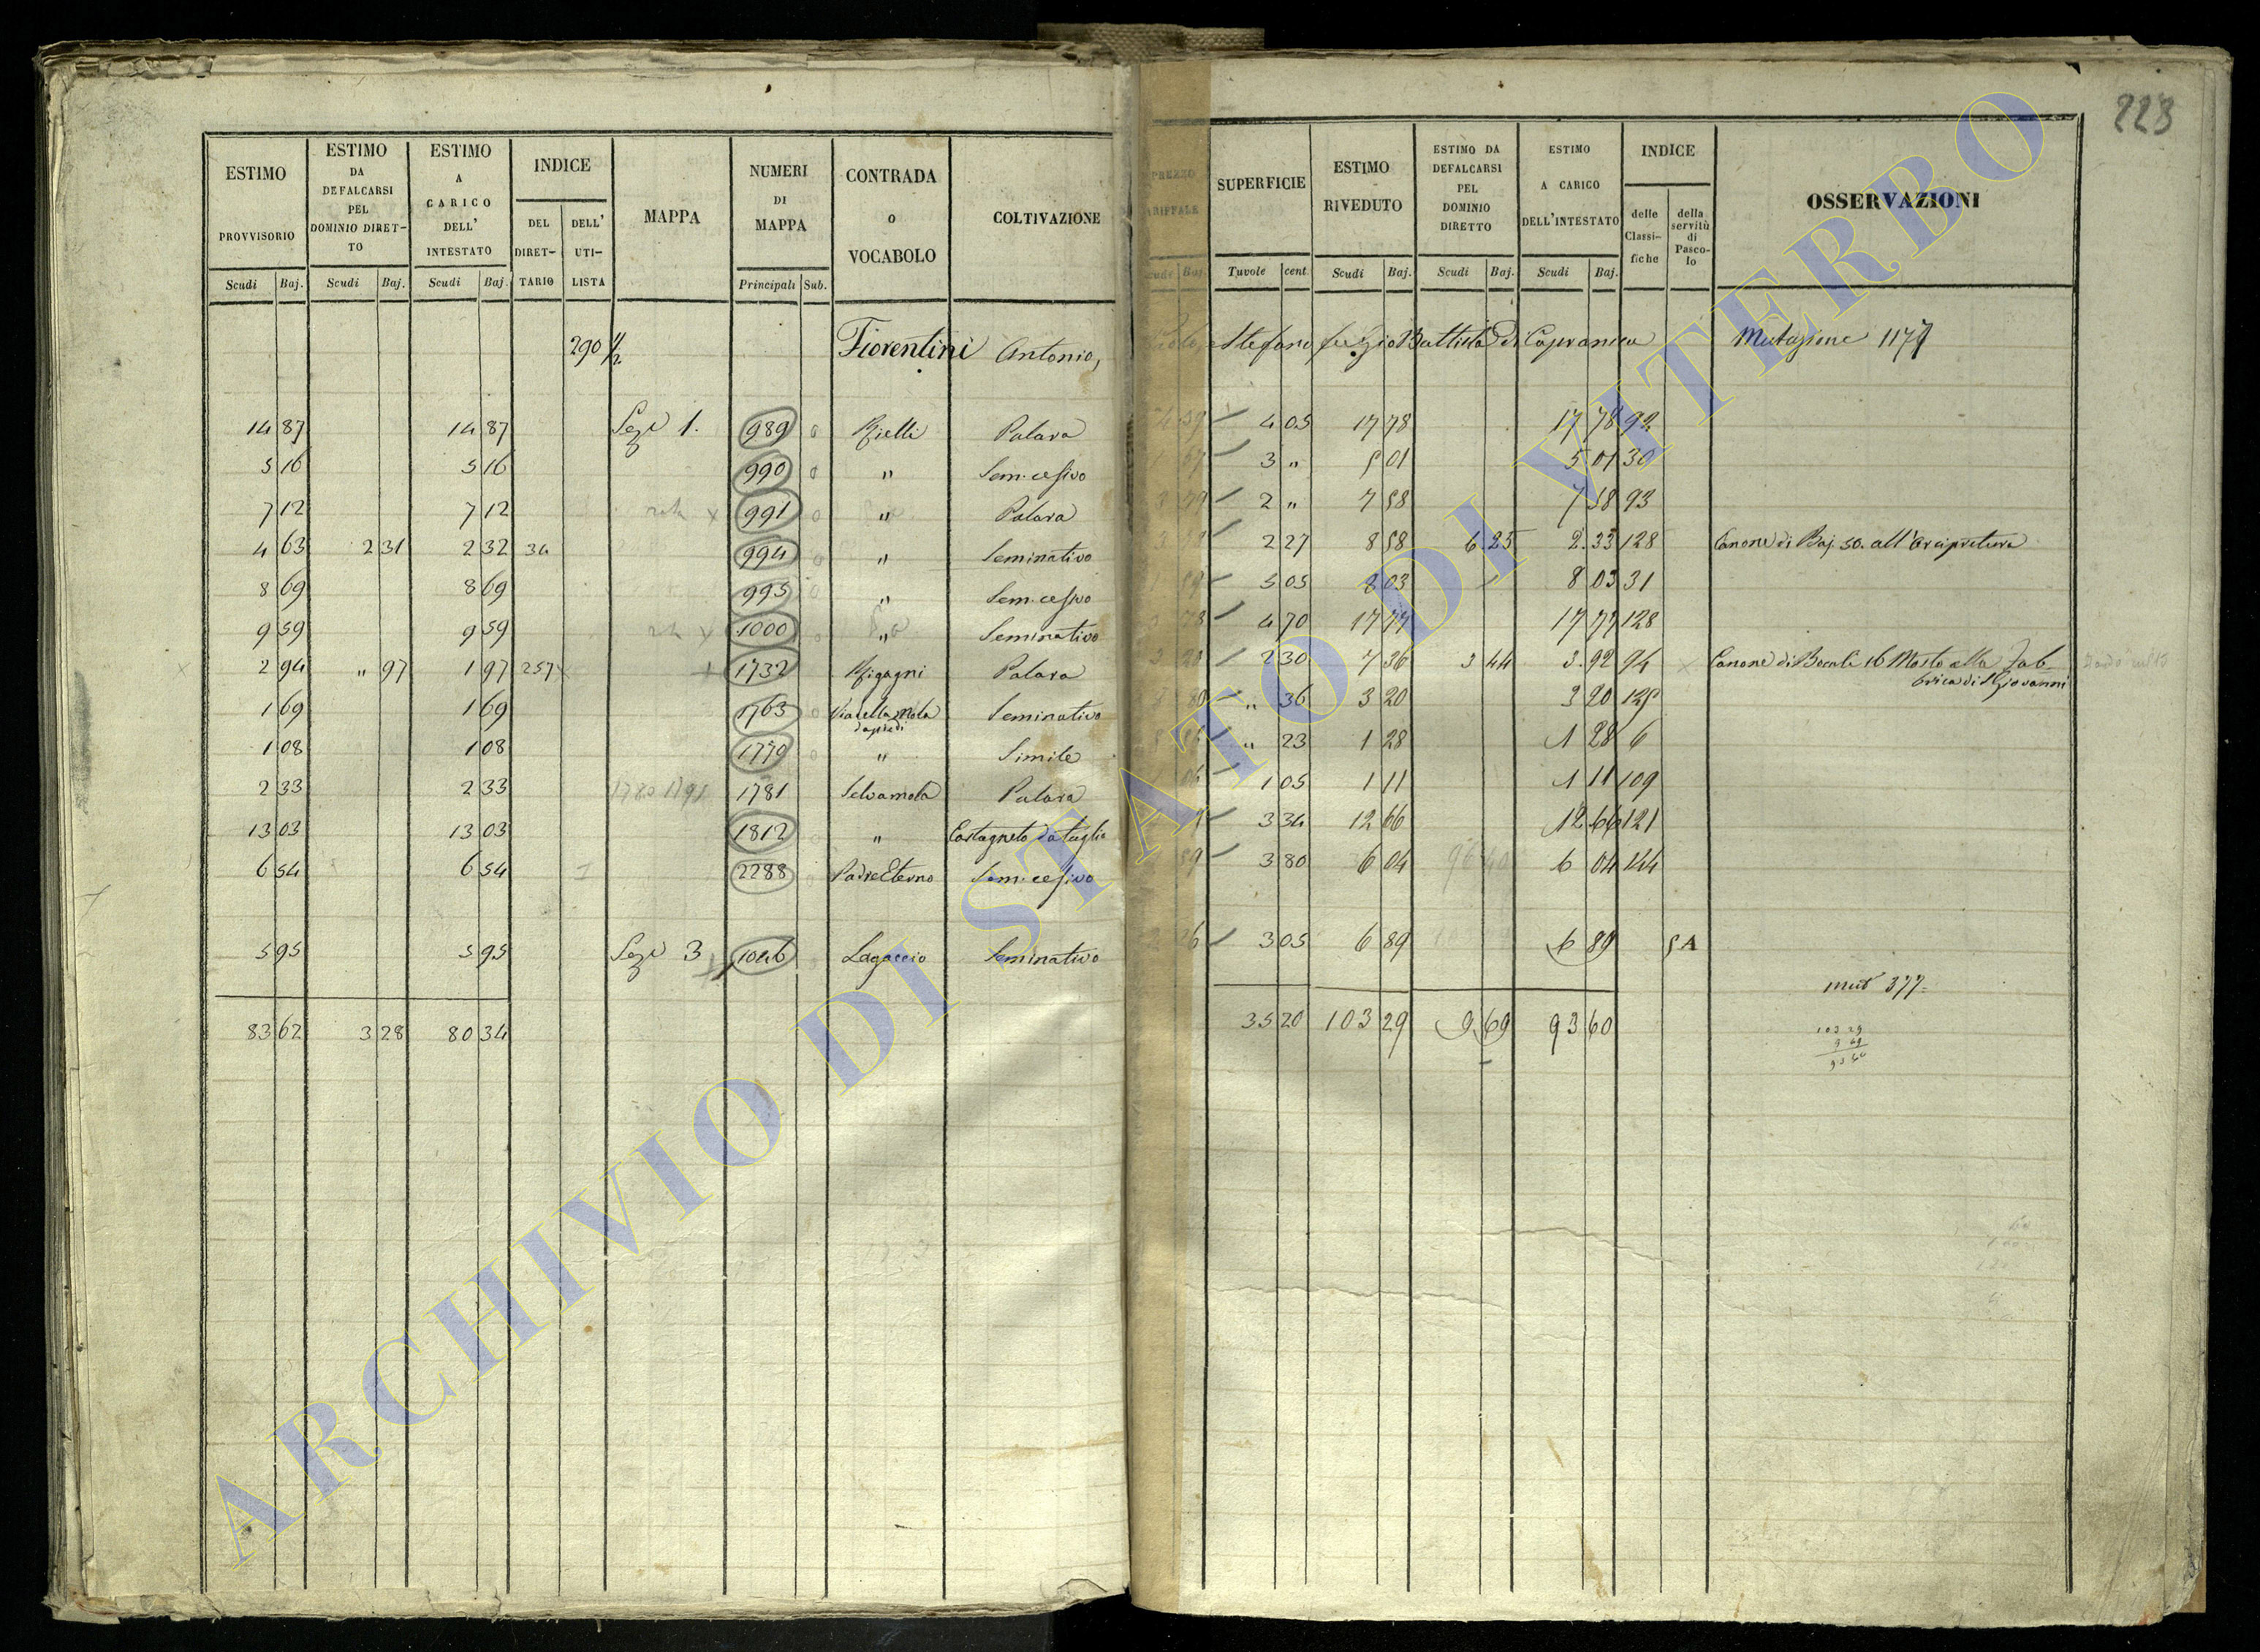 223
ESTIMO PROVVISORIO Scudi Baj.
ESTIMO DA DEFALCARSI PEL DOMINIO DIRETTO Scudi Baj.
ESTIMO A CARICO DELL' INTESTATO Scudi Baj.
INDICE DEL DIRETTARIO DELL' UTILISTA
MAPPA
NUMERI DI MAPPA Principali Sub.
CONTRADA O VOCABOLO
COLTIVAZIONE
SUPERFICIE Tavole cent.
ESTIMO RIVEDUTO Scudi Baj.
ESTIMO DA DEFALCARSI PEL DOMINIO DIRETTO Scudi Baj.
ESTIMO A CARICO DELL'INTESTATO Scudi Baj.
INDICE delle Classifiche della servitù di Pascolo
OSSERVAZIONI
290 1/2 Fiorentini Antonio, Stefano Battista di Capranica Mutazione
14 87 14 87 1. 989 Palara 4 05 17 78 17 78 92
5 16 5 16 990 " Sem. cesivo 3 " 5 01 5 01 30
7 12 7 12 991 " Palara 2 " 7 58 7 58 93
4 63 2 31 2 32 34 994 " Seminativo 2 27 8 58 6 25 2 33 128 Canone di Baj. 50. all'Arcipretura
8 69 8 69 995 " Sem. cesivo 5 05 8 03 8 03 31
9 59 9 59 1000 " Seminativo 4 70 17 77 17 77 128
2 94 " 97 1 97 257 1732 Palara 2 30 7 36 3 44 3 92 94 Canone di Bocali 16 Mosto alla Fabbrica di S. Giovanni
1 69 1 69 1763 Via della Mola Seminativo " 36 3 20 3 20 125
1 08 1 08 1779 " Simile " 23 1 28 1 28 6
2 33 2 33 1781 Selvamola Palara 1 05 1 11 1 11 109
13 03 13 03 1812 " Castagneto da taglio 3 34 12 66 12 66 121
6 54 6 54 2288 Padre Eterno Sem. cesivo 3 80 6 04 6 04 144
5 95 5 95 3 1046 Lagaccio Seminativo 3 05 6 89 6 89 5A
mut 377
83 62 3 28 80 34 35 20 103 29 9 69 93 60
103 29
9 69
93 60
ARCHIVIO DI STATO DI VITERBO